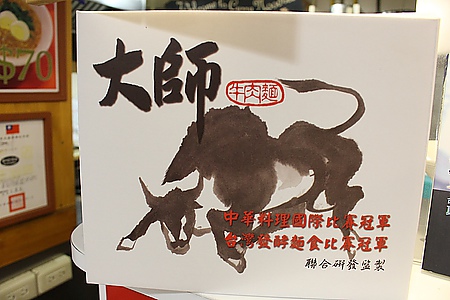 大師
牛肉麵
中華料理國際比賽冠軍
台灣發酵麵食比賽冠軍
聯合研發監製
$70